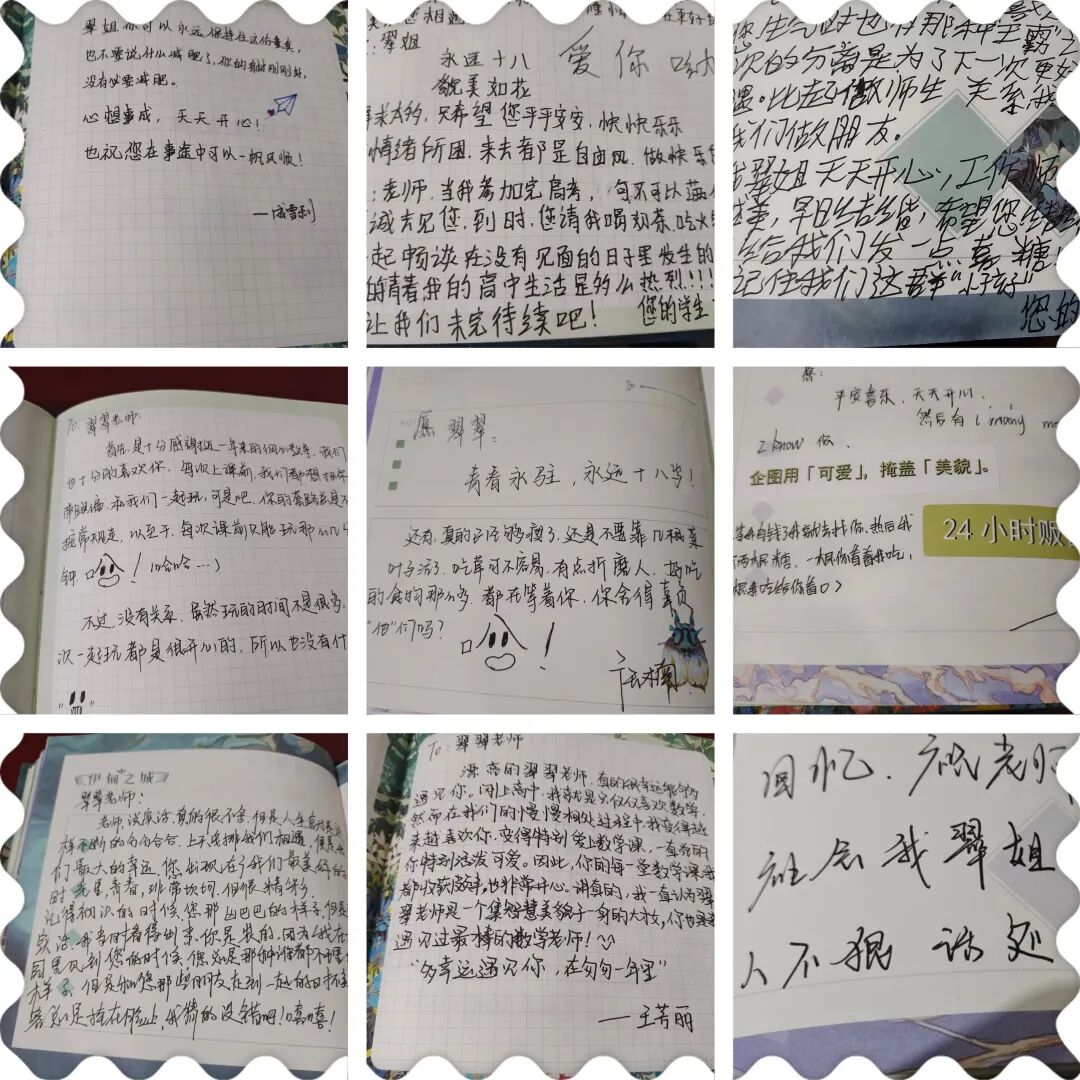 翠姐你可以永远保持在这份童真，
也不要说什么减肥了，你的身材刚刚好，
没有必要减肥。
心想事成，天天开心！
也祝您在事途中可以一帆风顺！
翠姐
永远十八
貌美如花
爱你
求太多，只希望您平平安安，快快乐乐
情绪所困，来去都是自由风，做快乐
老师，当我参加完高考，可不可以
诚去见您，到时，您请我喝奶茶，吃火
起畅谈在没有见面的日子里发生的
的青春我的高中生活是多么热烈！！！
让我们未完待续吧！ 您的学生
次的分离是为了下一次更好
遇。比起做师生关系我
我们做朋友。
翠姐天天开心，工作顺
早日结婚，希望您结
给我们发一点喜糖
记住我们这群“小孩”
您的
To：翠翠老师：
首先是十分感谢近一年来的倾心教导，我们
也十分的喜欢你，每次上课前，我们都想把你
来我们一起玩，可是吧，你的套路总是不
按常规走，以至于，每次课前只能玩那
钟，口 ！（哈哈…）
不过，没有关系，虽然玩的时间不是很多，
次一起玩都是很开心的，所以也没有什
愿翠翠：
青春永驻，永远十八岁！
还有，真的已经够瘦了，还是不要靠几根菜
叶子活了，吃草可不容易，有点折磨人，好吃
的食物那么多，都在等着你，你舍得辜负
“他”们吗？
口 ！
平安喜乐，天天开心，
然后有（many
I know 你
企图用「可爱」，掩盖「美貌」。
24 小时贩
等我有钱了我就去找你，然后我
两根糖，一根你看着我吃，
伊甸之城
翠翠老师：
老师，说废话，真的很不舍，但是人生
样不断的分分合合，上天安排我们相遇，便是
们最大的幸运，您出现在了我们最美好的
时光里，青春，班带坎坷，但很精彩，
记得初识的时候，您那凶巴巴的样子，但是
我当时看得出来，你是装的，因为我在
园里见到您的时候，您总是那种谁都不
样子，但是和您那些朋友在到一起的时候
容总是挂在脸上，我猜的没错吧！嘻嘻！
To：翠翠老师
漂亮的翠翠老师，真的很幸运能够
遇见你。刚上高中，我就是只仅仅喜欢数学，
然而在我们的慢慢相处过程中，我变得越
来越喜欢你，变得特别爱上数学课，一直觉得
你特别活泼可爱。因此，你的每一堂数学课
都收获颇丰，也非常开心。讲真的，我一直认为翠
翠老师是一个集智慧美貌于一身的大女，你也是
遇见过最棒的数学老师！
“多幸运遇见你，在匆匆一年里”
—王芳丽
回忆．祝老师
社会我翠姐
人不狠 话